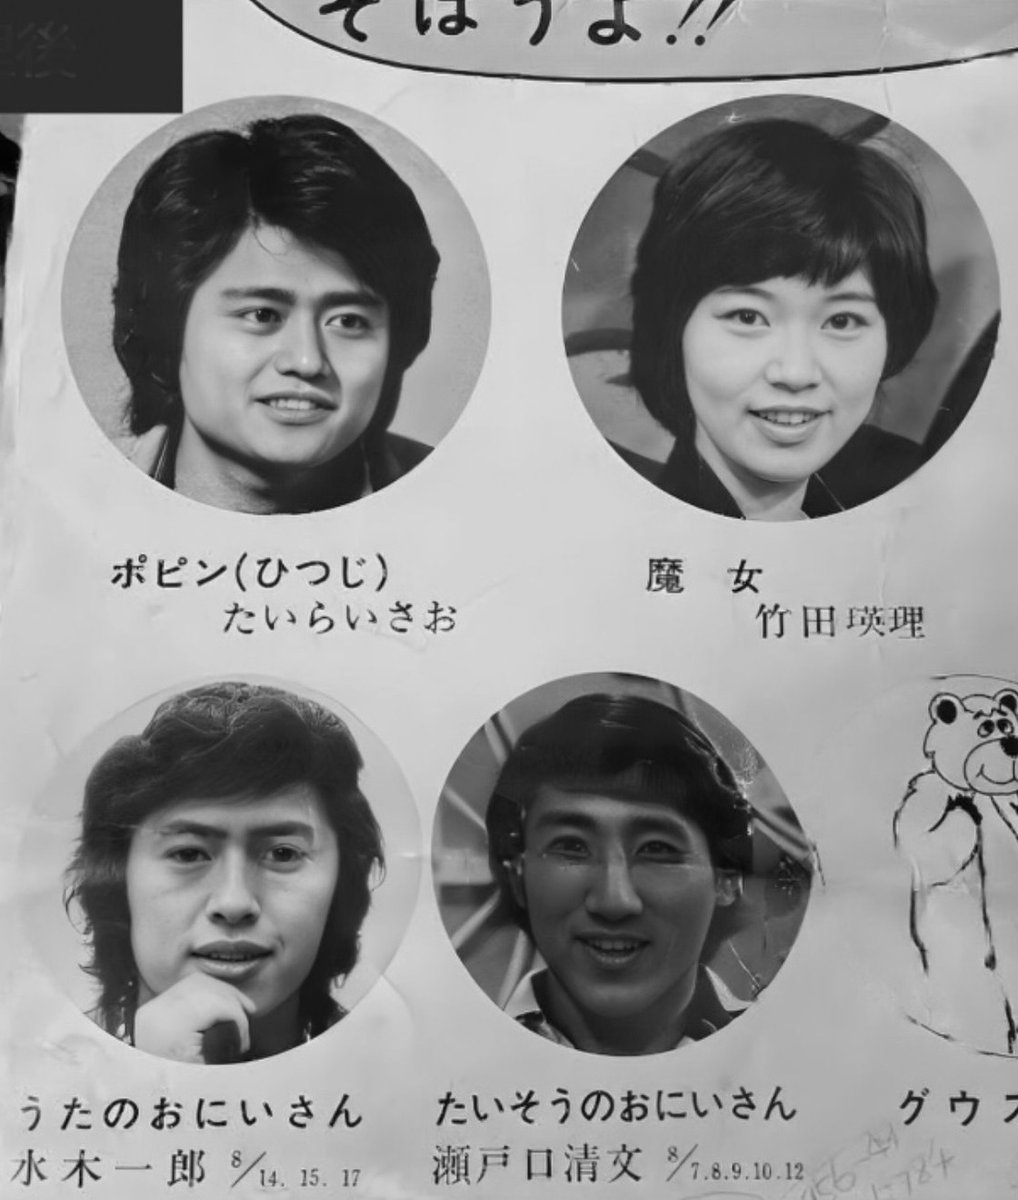 後
そぼうよ!!
ポピン(ひつじ)
たいらいさお
魔女
竹田瑛理
うたのおにいさん
水木一郎 8/14. 15. 17
たいそうのおにいさん
瀬戸口清文 8/7.8.9.10.12
グウ